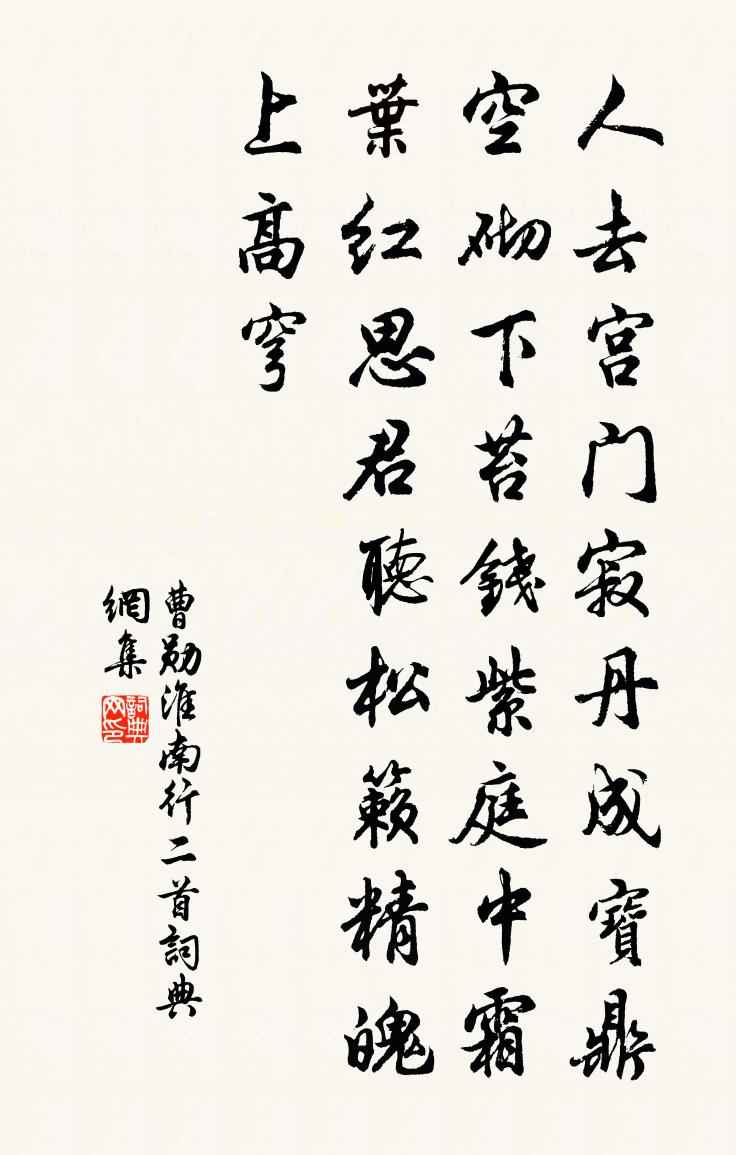 人去宮門寂丹成寶鼎
空砌下苔錢紫庭中霜
葉紅思君聽松籟精魄
上高穹
曹勛淮南行二首詞典
網集
詞典網印